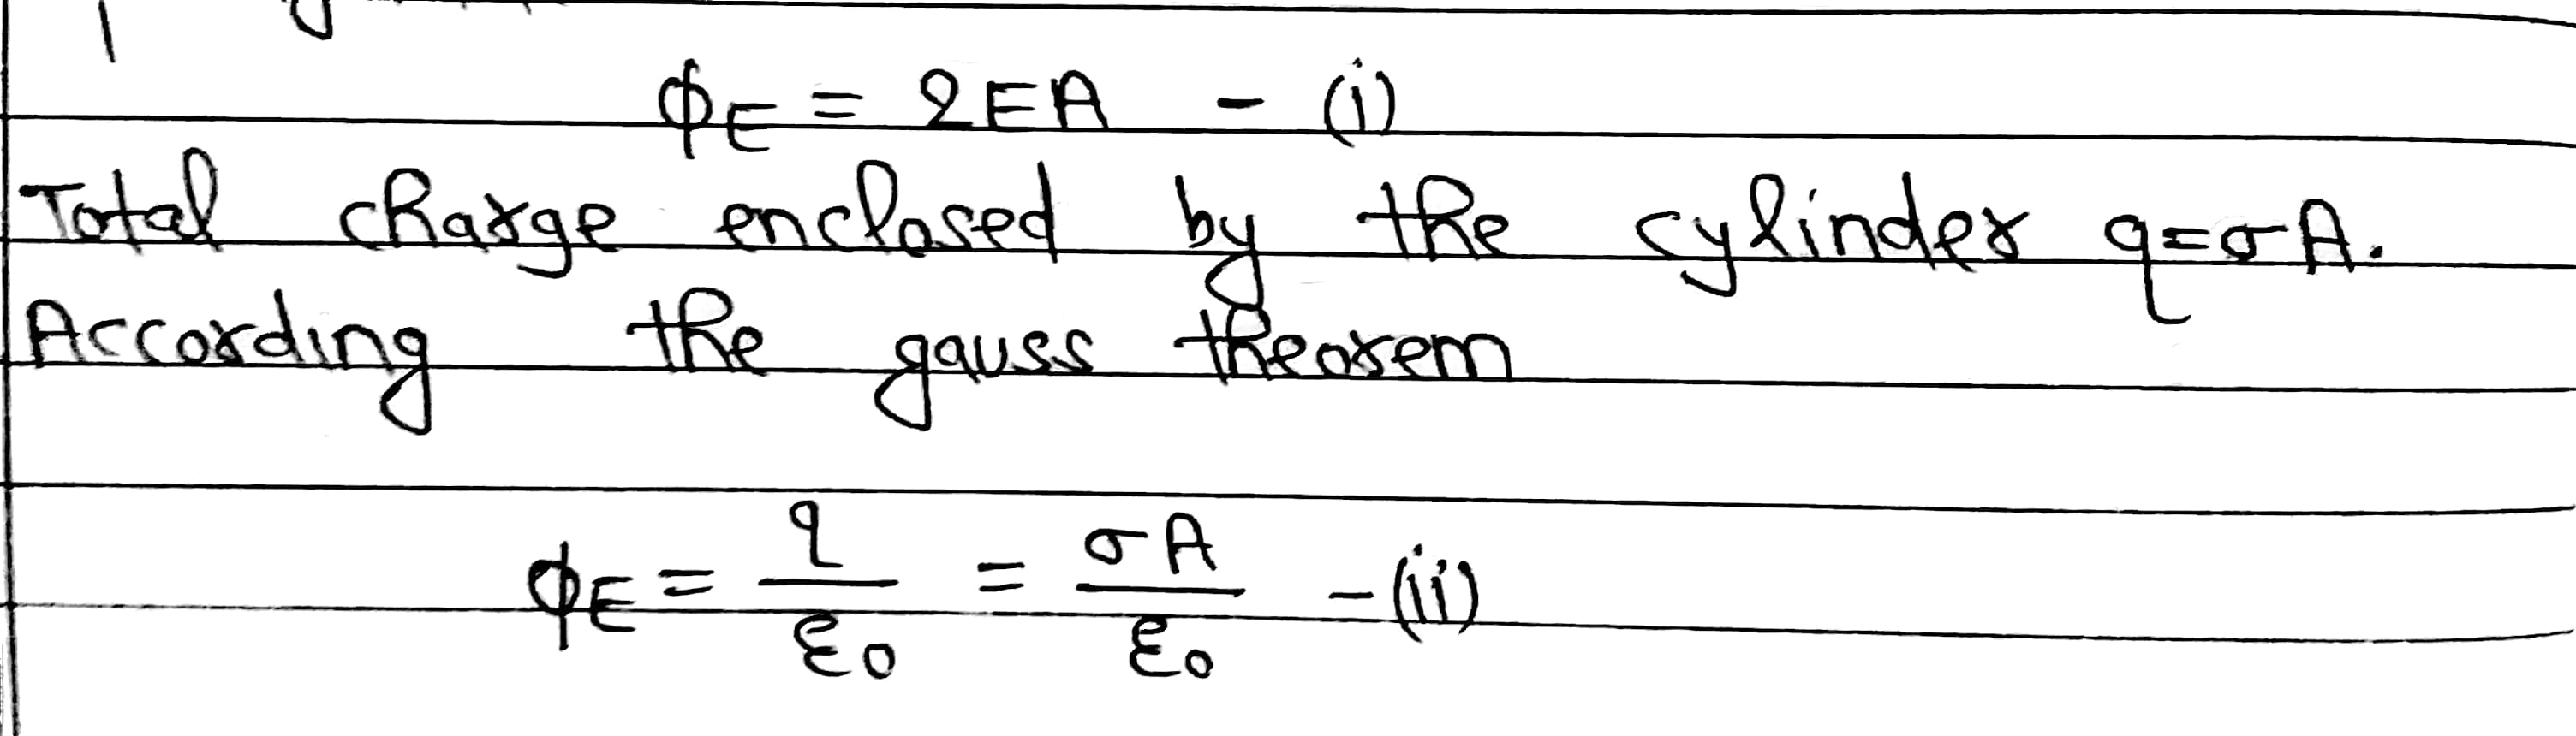 ϕE = 2EA - (i)
Total charge enclosed by the cylinder q=σA.
According the gauss theorem
ϕE = q/ε0 = σA/ε0 - (ii)